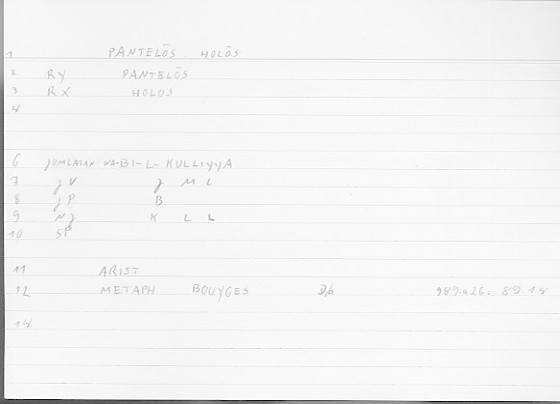 1 PANTELŌS HOLŌS
2 RY PANTELŌS
3 RX HOLOS
4
6 JUMLATAN WA-BI-L-KULLIYYA
7 JV J M L
8 JP B
9 NJ K L L
10 SP
11 ARIST
12 METAPH BOUYGES 989a26: 89.18
14